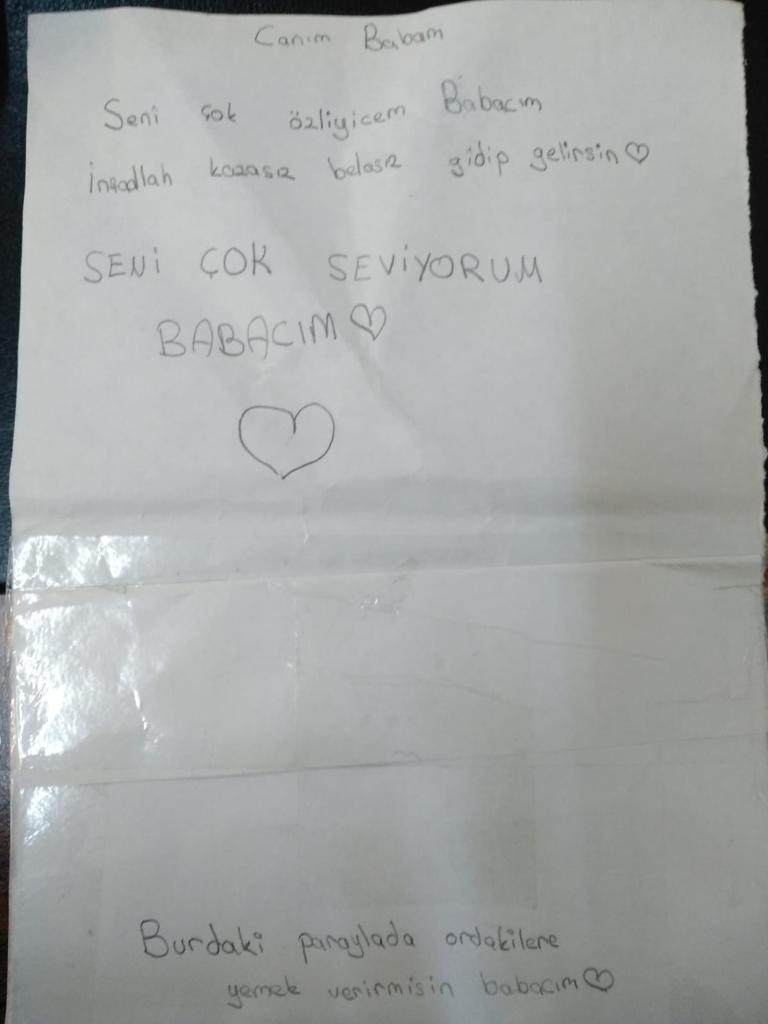 Canım Babam
Seni çok özliyicem Babacım
İnşadlah kazasız belasız gidip gelirsin♡
SENİ ÇOK SEVİYORUM
BABACIM♡
Burdaki paraylada ordakilere
yemek verirmisin babacım♡